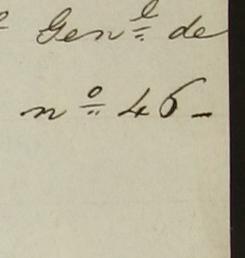 Gen^l de
nº 46_